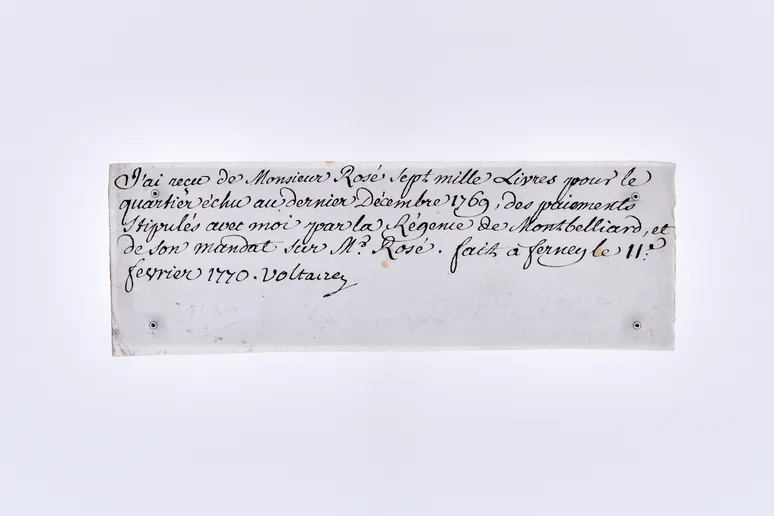 J'ai reçu de Monsieur Rosé Sept mille Livres pour le
quartier échu au dernier Décembre 1769, des paiements
Stipulés avec moi par la Régence de Montbelliard, et
de son mandat sur Mr. Rosé. fait à ferney le 11e
fevrier 1770. Voltaire